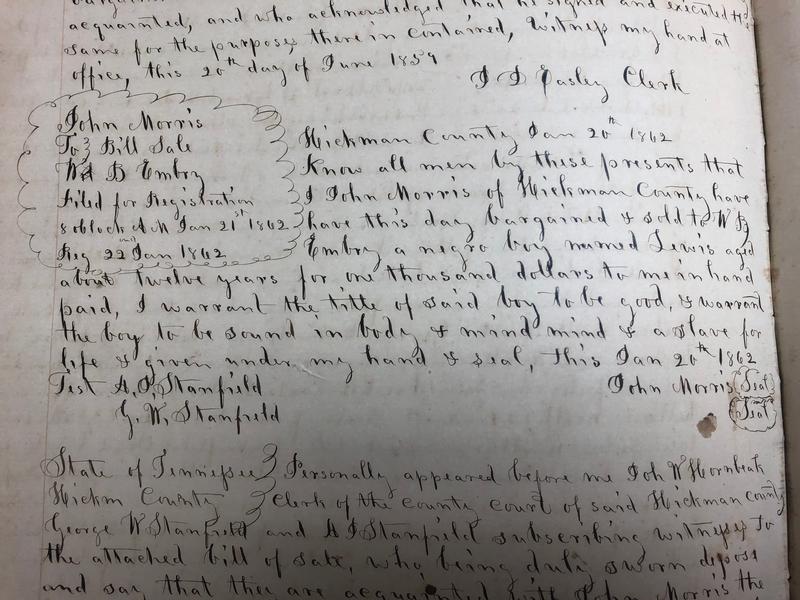 acquainted, and who acknowledged that he signed and executed the
same for the purposes therein contained, Witness my hand at
office, this 20th day of June 1859
Easley Clerk
John Morris
To } Bill Sale
W B Embry
Filed for Registration
8 oblock A M Jan 21st 1862
Reg 22nd Jan 1862
Hickman County Jan 20th 1862
Know all men by these presents that
I John Morris of Hickman County have
have this day bargained & sold to W B
Embry a negro boy named Lewis aged
about twelve years for one thousand dollars to me in hand
paid, I warrant the title of said boy to be good, & warrant
the boy to be sound in body & mind mind & a slave for
life & given under my hand & seal, this Jan 20th 1862
Test A. J. Stanfield John Morris (Seal)
G. W. Stanfield (Seal)
State of Tennessee } Personally appeared before me Joh W Hornbeak
Hickm County } Clerk of the County court of said Hickman county
George W Stanfield and A J Stanfield subscribing witness to
the attached bill of sale, who being duly sworn depose
and say that they are acquainted with John Morris the